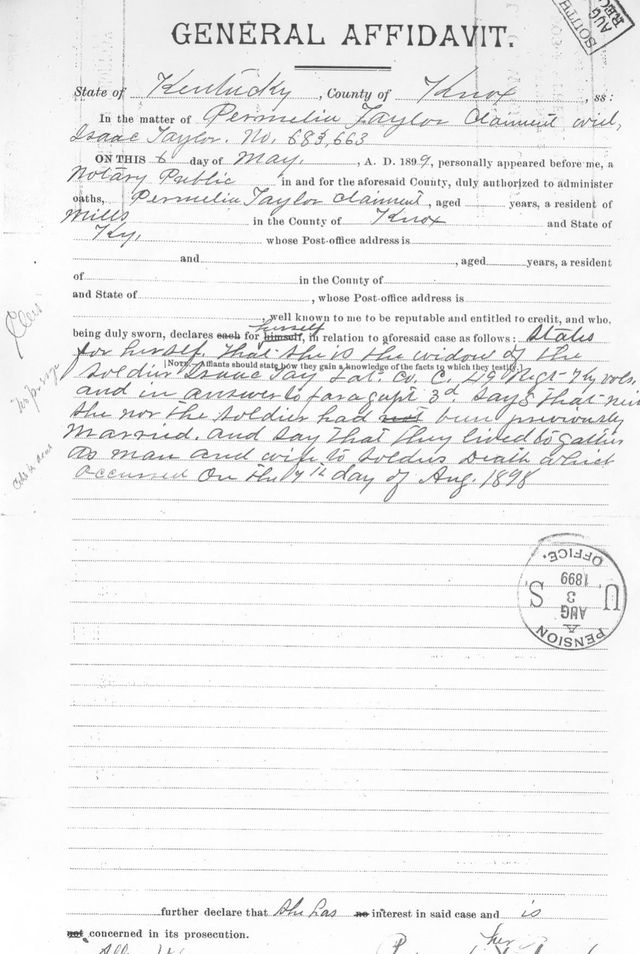 SOUTH
AUG
REC
GENERAL AFFIDAVIT.
State of Kentucky, County of Knox, ss:
In the matter of Permelia Taylor Claiment wid,
Isaac Taylor. No. 683,663
ON THIS 6 day of May, A. D. 1899, personally appeared before me, a
Notary Public in and for the aforesaid County, duly authorized to administer
oaths, Permelia Taylor Claiment, aged years, a resident of
Mills in the County of Knox and State of
Ky, whose Post-office address is
and , aged years, a resident
of in the County of
and State of , whose Post-office address is
, well known to me to be reputable and entitled to credit, and who,
herself
being duly sworn, declares each for himself, in relation to aforesaid case as follows: States
for herself. That she is the widow of the
[NOTE.—Affiants should state how they gain a knowledge of the facts to which they testify.]
Soldier Isaac Tay Lat. Co. C. 49 Regt Ky vols,
and in answer to paragraph 3d Says that
She nor the soldier had not been previously
Married. and Say that they lived to gather
As man and wife to soldiers Death which
occurred On the day of Aug. 1898
PENSION OFFICE.
U. S.
AUG
3
1899
further declare that she has no interest in said case and is
not concerned in its prosecution.
her